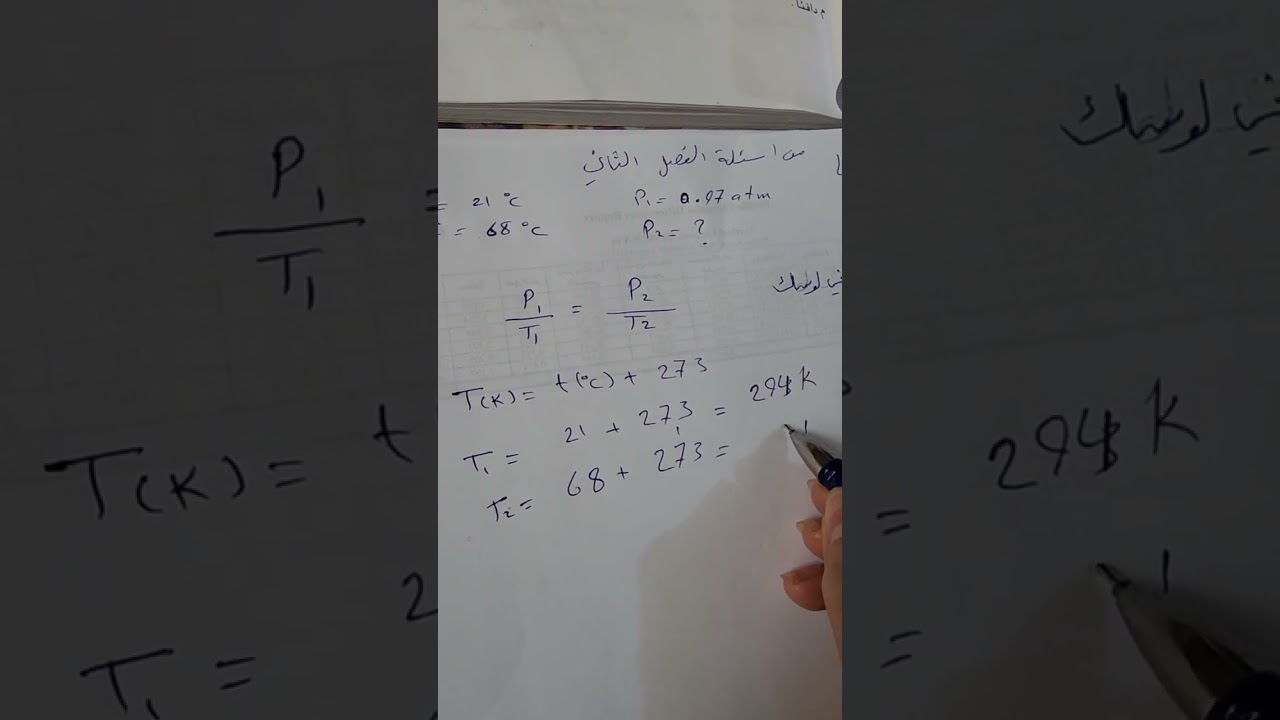 من اسئلة الفصل الثاني
= 21 °C P1 = 0.97 atm
= 68 °C P2 = ?
P1/T1 = P2/T2
T(K) = t(°C) + 273
T1 = 21 + 273 = 294 K
T2 = 68 + 273 =